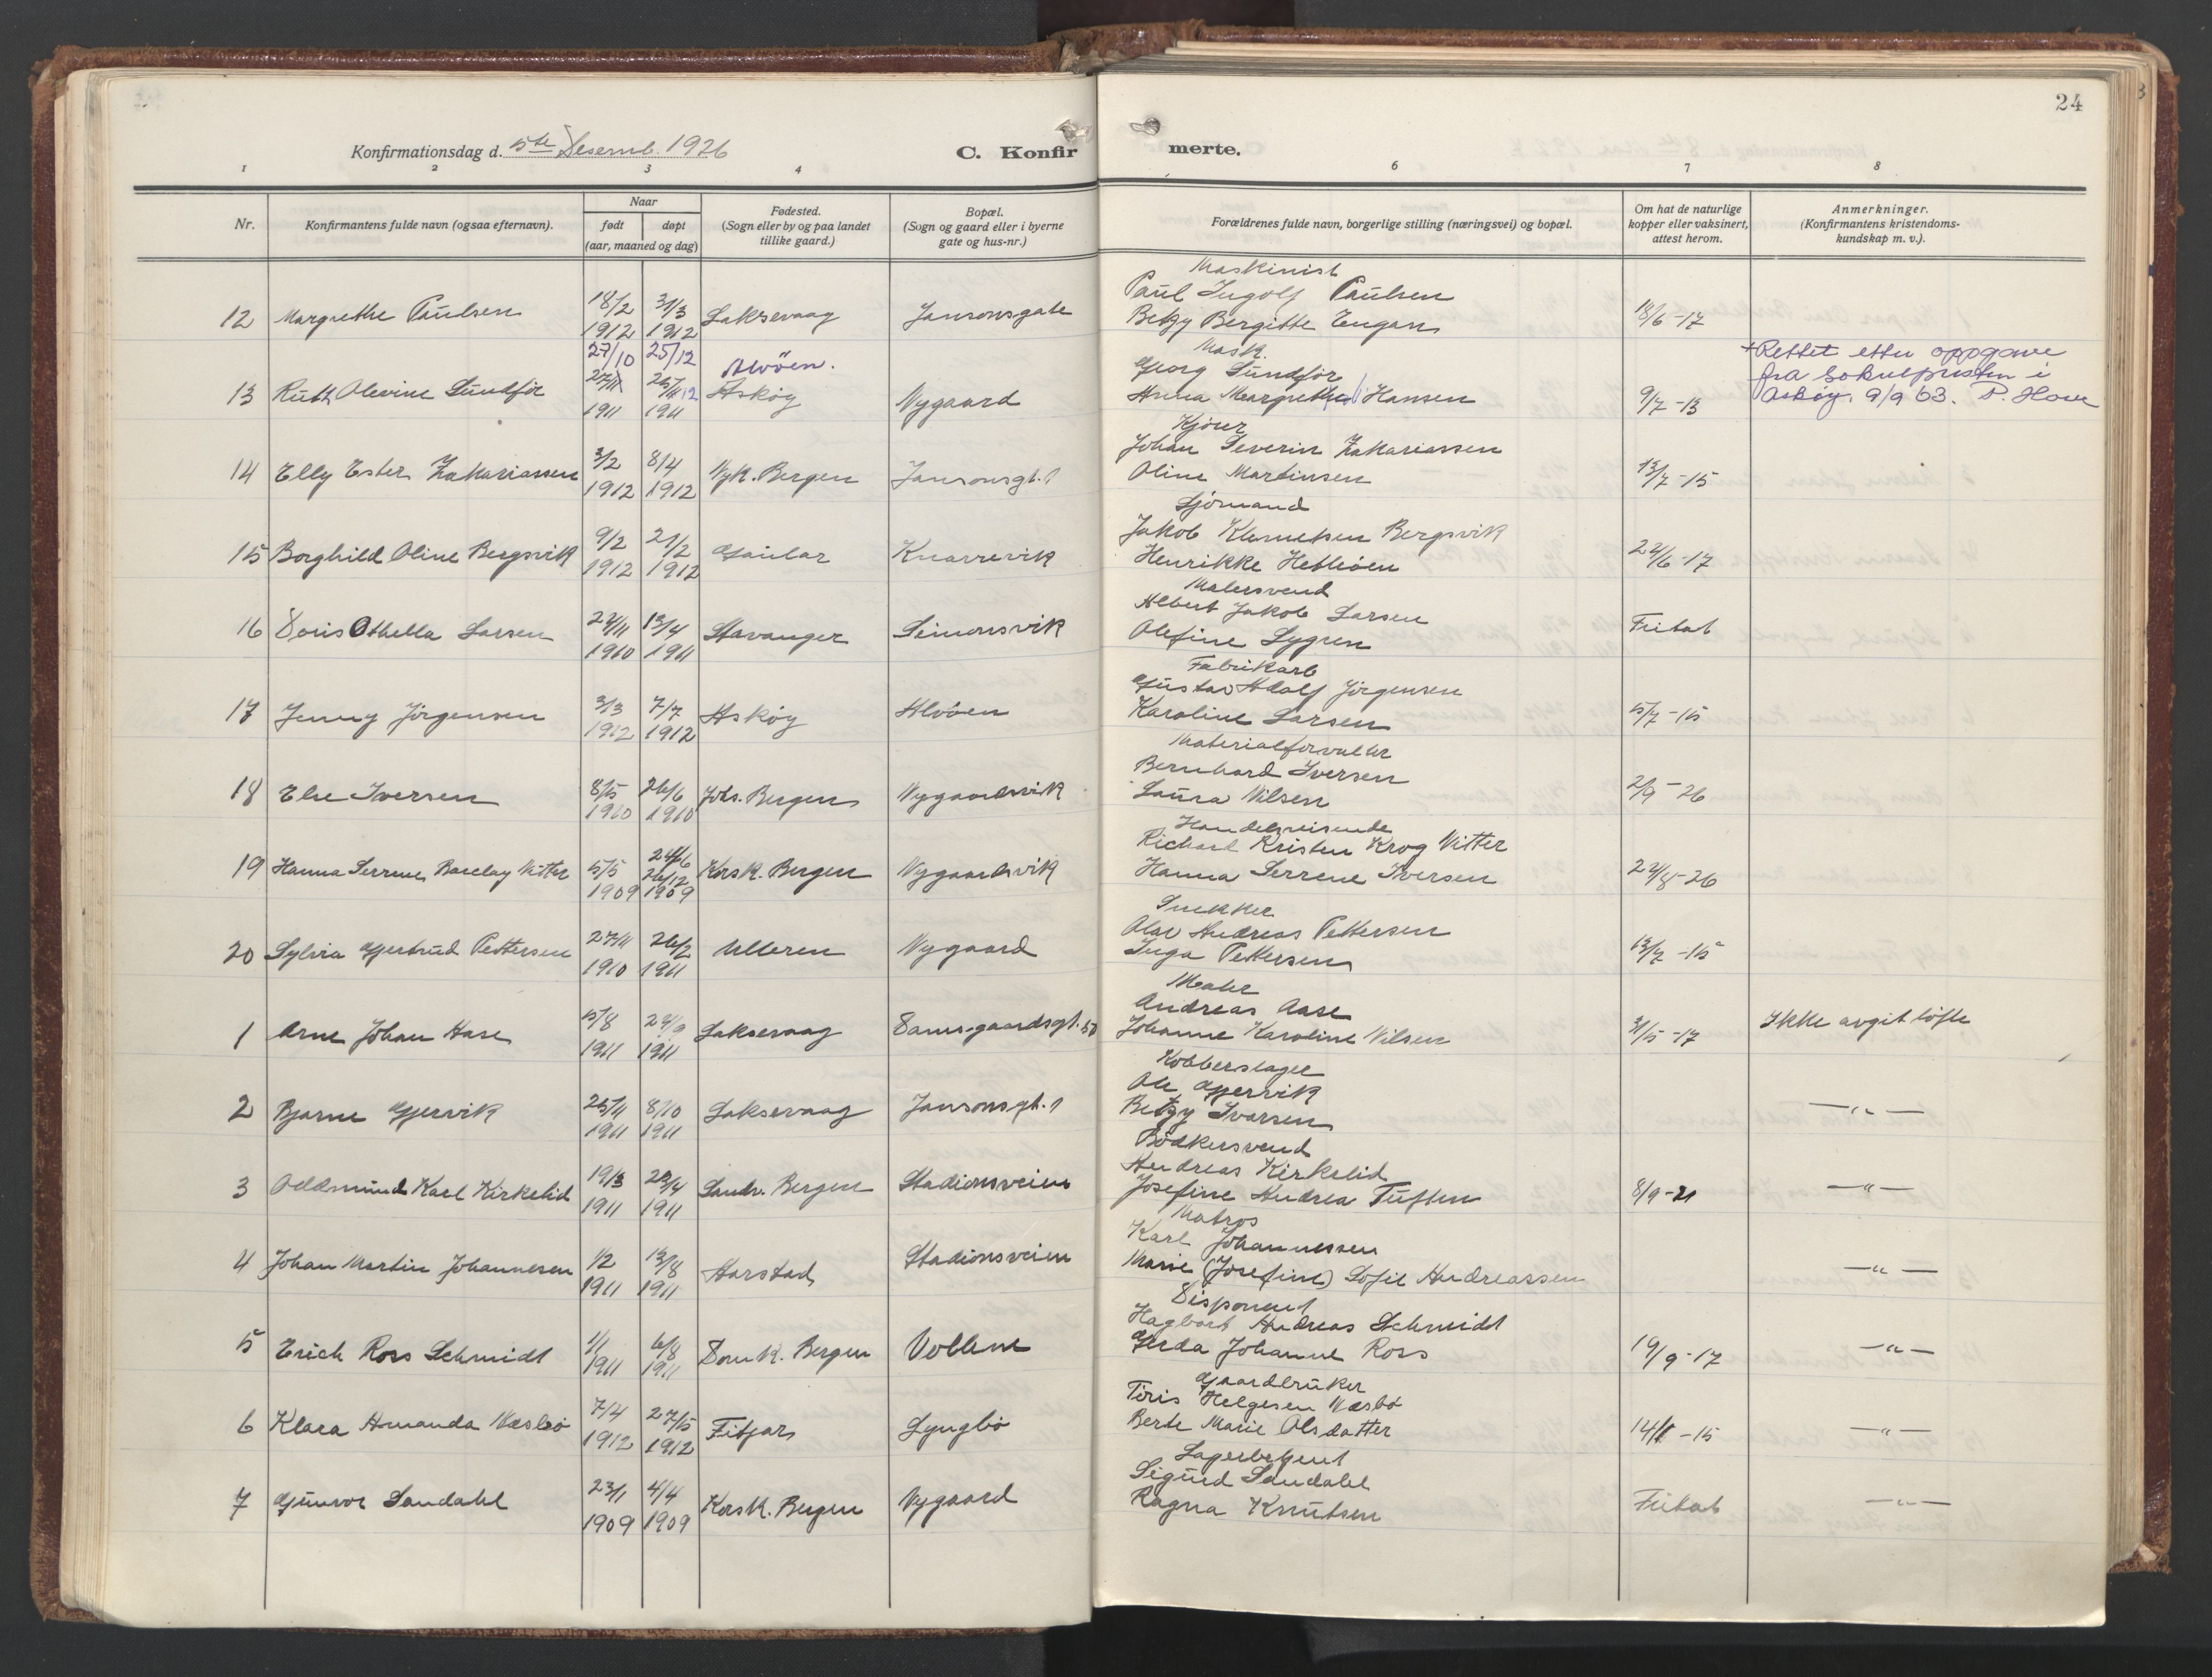 24
Konfirmationsdag d. 5te Desemb. 1926
C. Konfirmerte.
1 2 3 4 6 7 8
Nr.
Konfirmantens fulde navn (ogsaa efternavn).
Naar
født døpt
(aar, maaned og dag)
Fødested.
(Sogn eller by og paa landet
tillike gaard.)
Bopæl.
(Sogn og gaard eller i byerne
gate og hus-nr.)
Forældrenes fulde navn, borgerlige stilling (næringsvei) og bopæl.
Om hat de naturlige
kopper eller vaksinert,
attest herom.
Anmerkninger.
(Konfirmantens kristendoms-
kundskap m. v.).
12 Margrethe Paulsen 18/2 1912 31/3 1912 Laksevaag Jansonsgate
Maskinist
Paul Ingolf Paulsen
Betzy Bergitte Engan
18/6-17
13 Ruth Olevine Sundför 27/10 27/11 1911 25/12 1911 Alvöen. Askøy Nygaard
Mask.
Georg Sundför
Anna Margrethe Hansen
9/7-13
+Rettet etter oppgave
fra soknepresten i
Askøy. 9/9 63. P. Hove
14 Elly Ester Zakariassen 3/2 1912 8/4 1912 Nyk. Bergen Jansonsgt. 1
Kjörer
Johan Severin Zakariassen
Oline Martinsen
13/7-15
15 Borghild Oline Bergsvik 9/2 1912 21/2 1912 Gaular Knarrevik
Sjömand
Jakob Klemetsen Bergsvik
Henrikke Hetleöen
22/6-17
16 Doris Othella Larsen 24/11 1910 13/4 1911 Stavanger Simonsvik
Malersvend
Albert Jakob Larsen
Olefine Lygren
Fritat
17 Jenny Jörgensen 3/3 1912 7/7 1912 Askøy Alvöen
Fabrikarb
Gustav Adolf Jörgensen
Karoline Larsen
5/7-15
18 Else Iversen 8/5 1910 26/6 1910 Johs. Bergen Nygaardsvik
Materialforvalter
Bernhard Iversen
Laura Nilsen
2/9-26
19 Hanna Serrene Barclay Vitter 5/5 1909 24/6 26/12 1909 Korsk. Bergen Nygaardsvik
Handelsreisende
Richard Kristen Krog Vitter
Hanna Serrene Iversen
24/8-26
20 Sylvia Gjertrud Pettersen 27/11 1910 26/2 1911 Ulleren Nygaard
Snekker
Olav Andreas Pettersen
Inga Pettersen
13/7-15
1 Arne Johan Aase 5/8 1911 24/9 1911 Laksevaag Damsgaardsgt. 50
Maler
Andreas Aase
Johanne Karoline Nilsen
31/5-17
Ikke avgit löfte
2 Bjarne Gjervik 1911 8/10 1911 Laksevaag Jansonsgt. 1
Kobberslager
Ole Gjervik
Betzy Ivarsen
—"—
3 Oddmund Karl Kirkelid 19/3 1911 23/4 1911 Sandv. Bergen Stadionsveien
Bödkersvend
Andreas Kirkelid
Josefine Andrea Tuften
8/9-21
—"—
4 Johan Martin Johannesen 1/2 1911 13/8 1911 Harstad Stadionsveien
Matros
Karl Johannessen
Marie (Josefine) Sofie Andreassen
—"—
5 Erich Ross Schmidt 1/1 1911 6/8 1911 Domk. Bergen Vollene
Disponent
Hagbart Andreas Schmidt
Gerda Johanne Ross
19/9-17
—"—
6 Klara Amanda Næsbö 7/4 1912 27/5 1912 Fitjar Lyngbö
Gaardbruker
Tiris Helgesen Næsbö
Berte Marie Olsdatter
—"—
7 Gunvor Sandahl 23/1 1909 4/4 1909 Korsk. Bergen Nygaard
Lagerbetjent
Sigurd Sandahl
Ragna Knutsen
Fritat
—"—